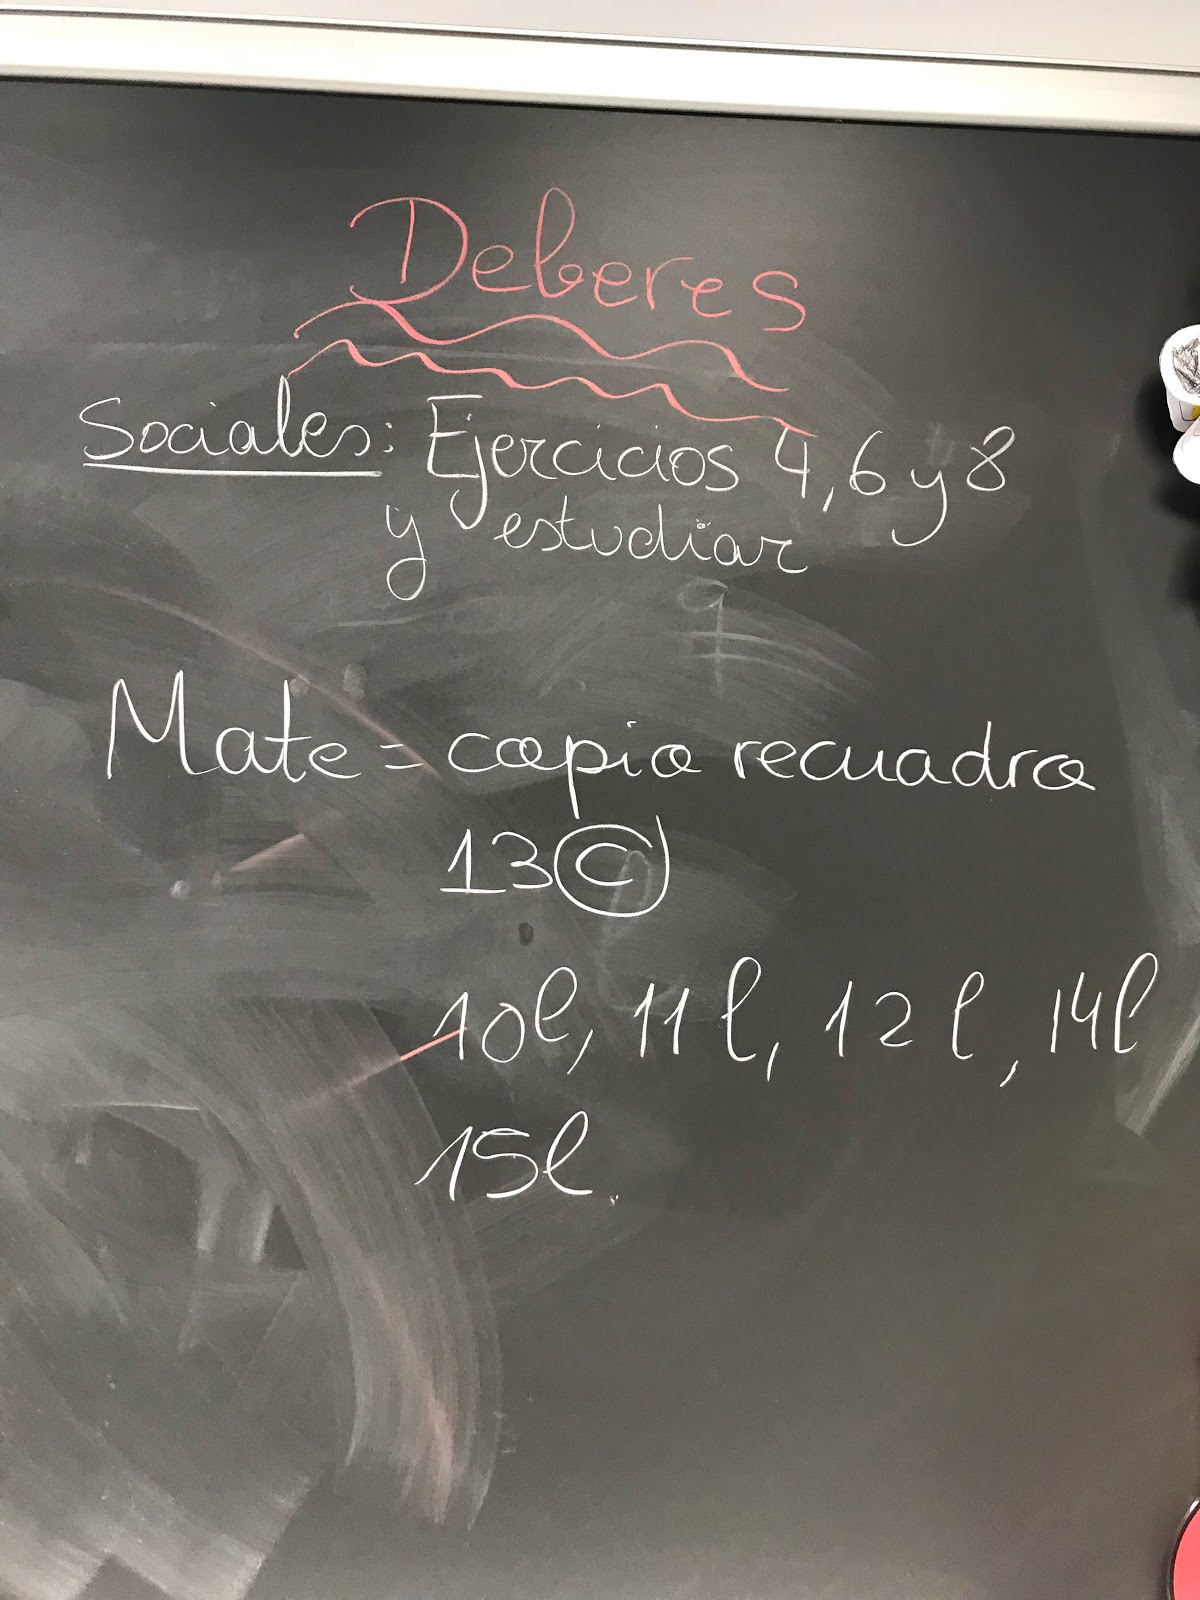 Deberes
Sociales: Ejercicios 4, 6 y 8
y estudiar
Mate = copia recuadro
13 ©
10l, 11l, 12l, 14l
15l.